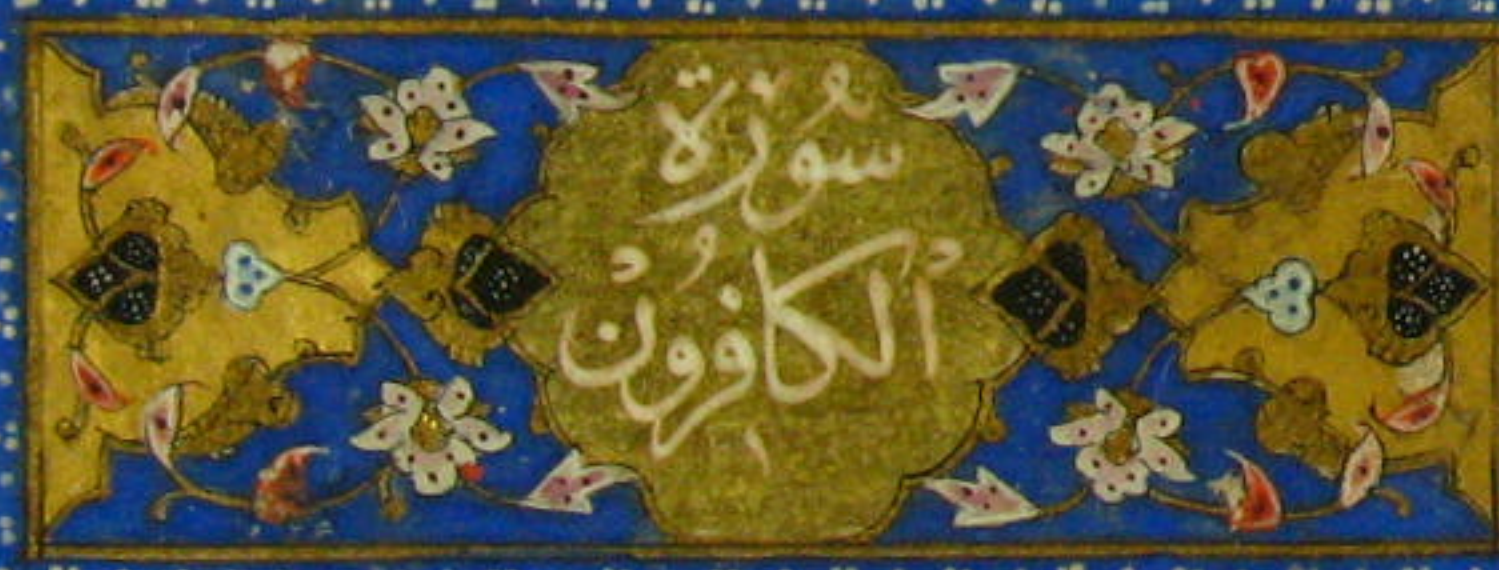 سُورَة
الكافرُون